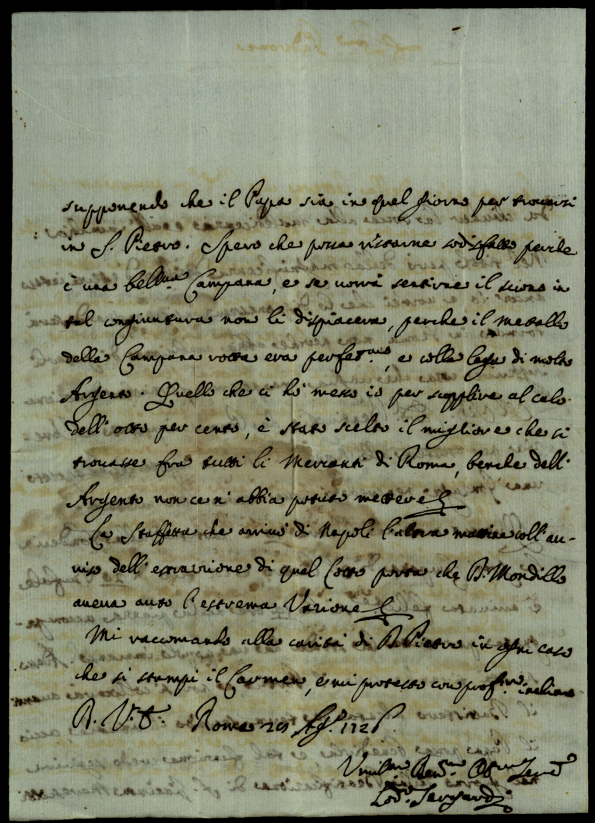 supponendo che il Papa sia in quel giorno per trovarsi
in S. Pietro. Spero che possa restarne sodisfatto perche
è una bell.ma Campana, e se vorrà sentirne il suono in
tal congiuntura non li dispiacerà, perche il metallo
della Campana rotta era perfet.mo, e colla lega di molto
Argento. Quello che ci hò messo io per supplire al calo
dell' otto per cento, è stato scelto il migliore che si
trovasse fra tutti li Mercanti di Roma, benche dell'
Argento non ce n' abbia potuto mettere
La Staffetta che arrivò di Napoli l'altra mattina coll' au-
viso dell' estrazione di quel Lotto porta che D. Mondillo
aveva auto l'estrema Unzione
Mi raccomando alla carità di P. Pietro in ogni caso
che si stampi il Carmen, e mi protesto con prof.ma
Roma Ag.o 1726
Umiliss.
Lod.o Sergardi